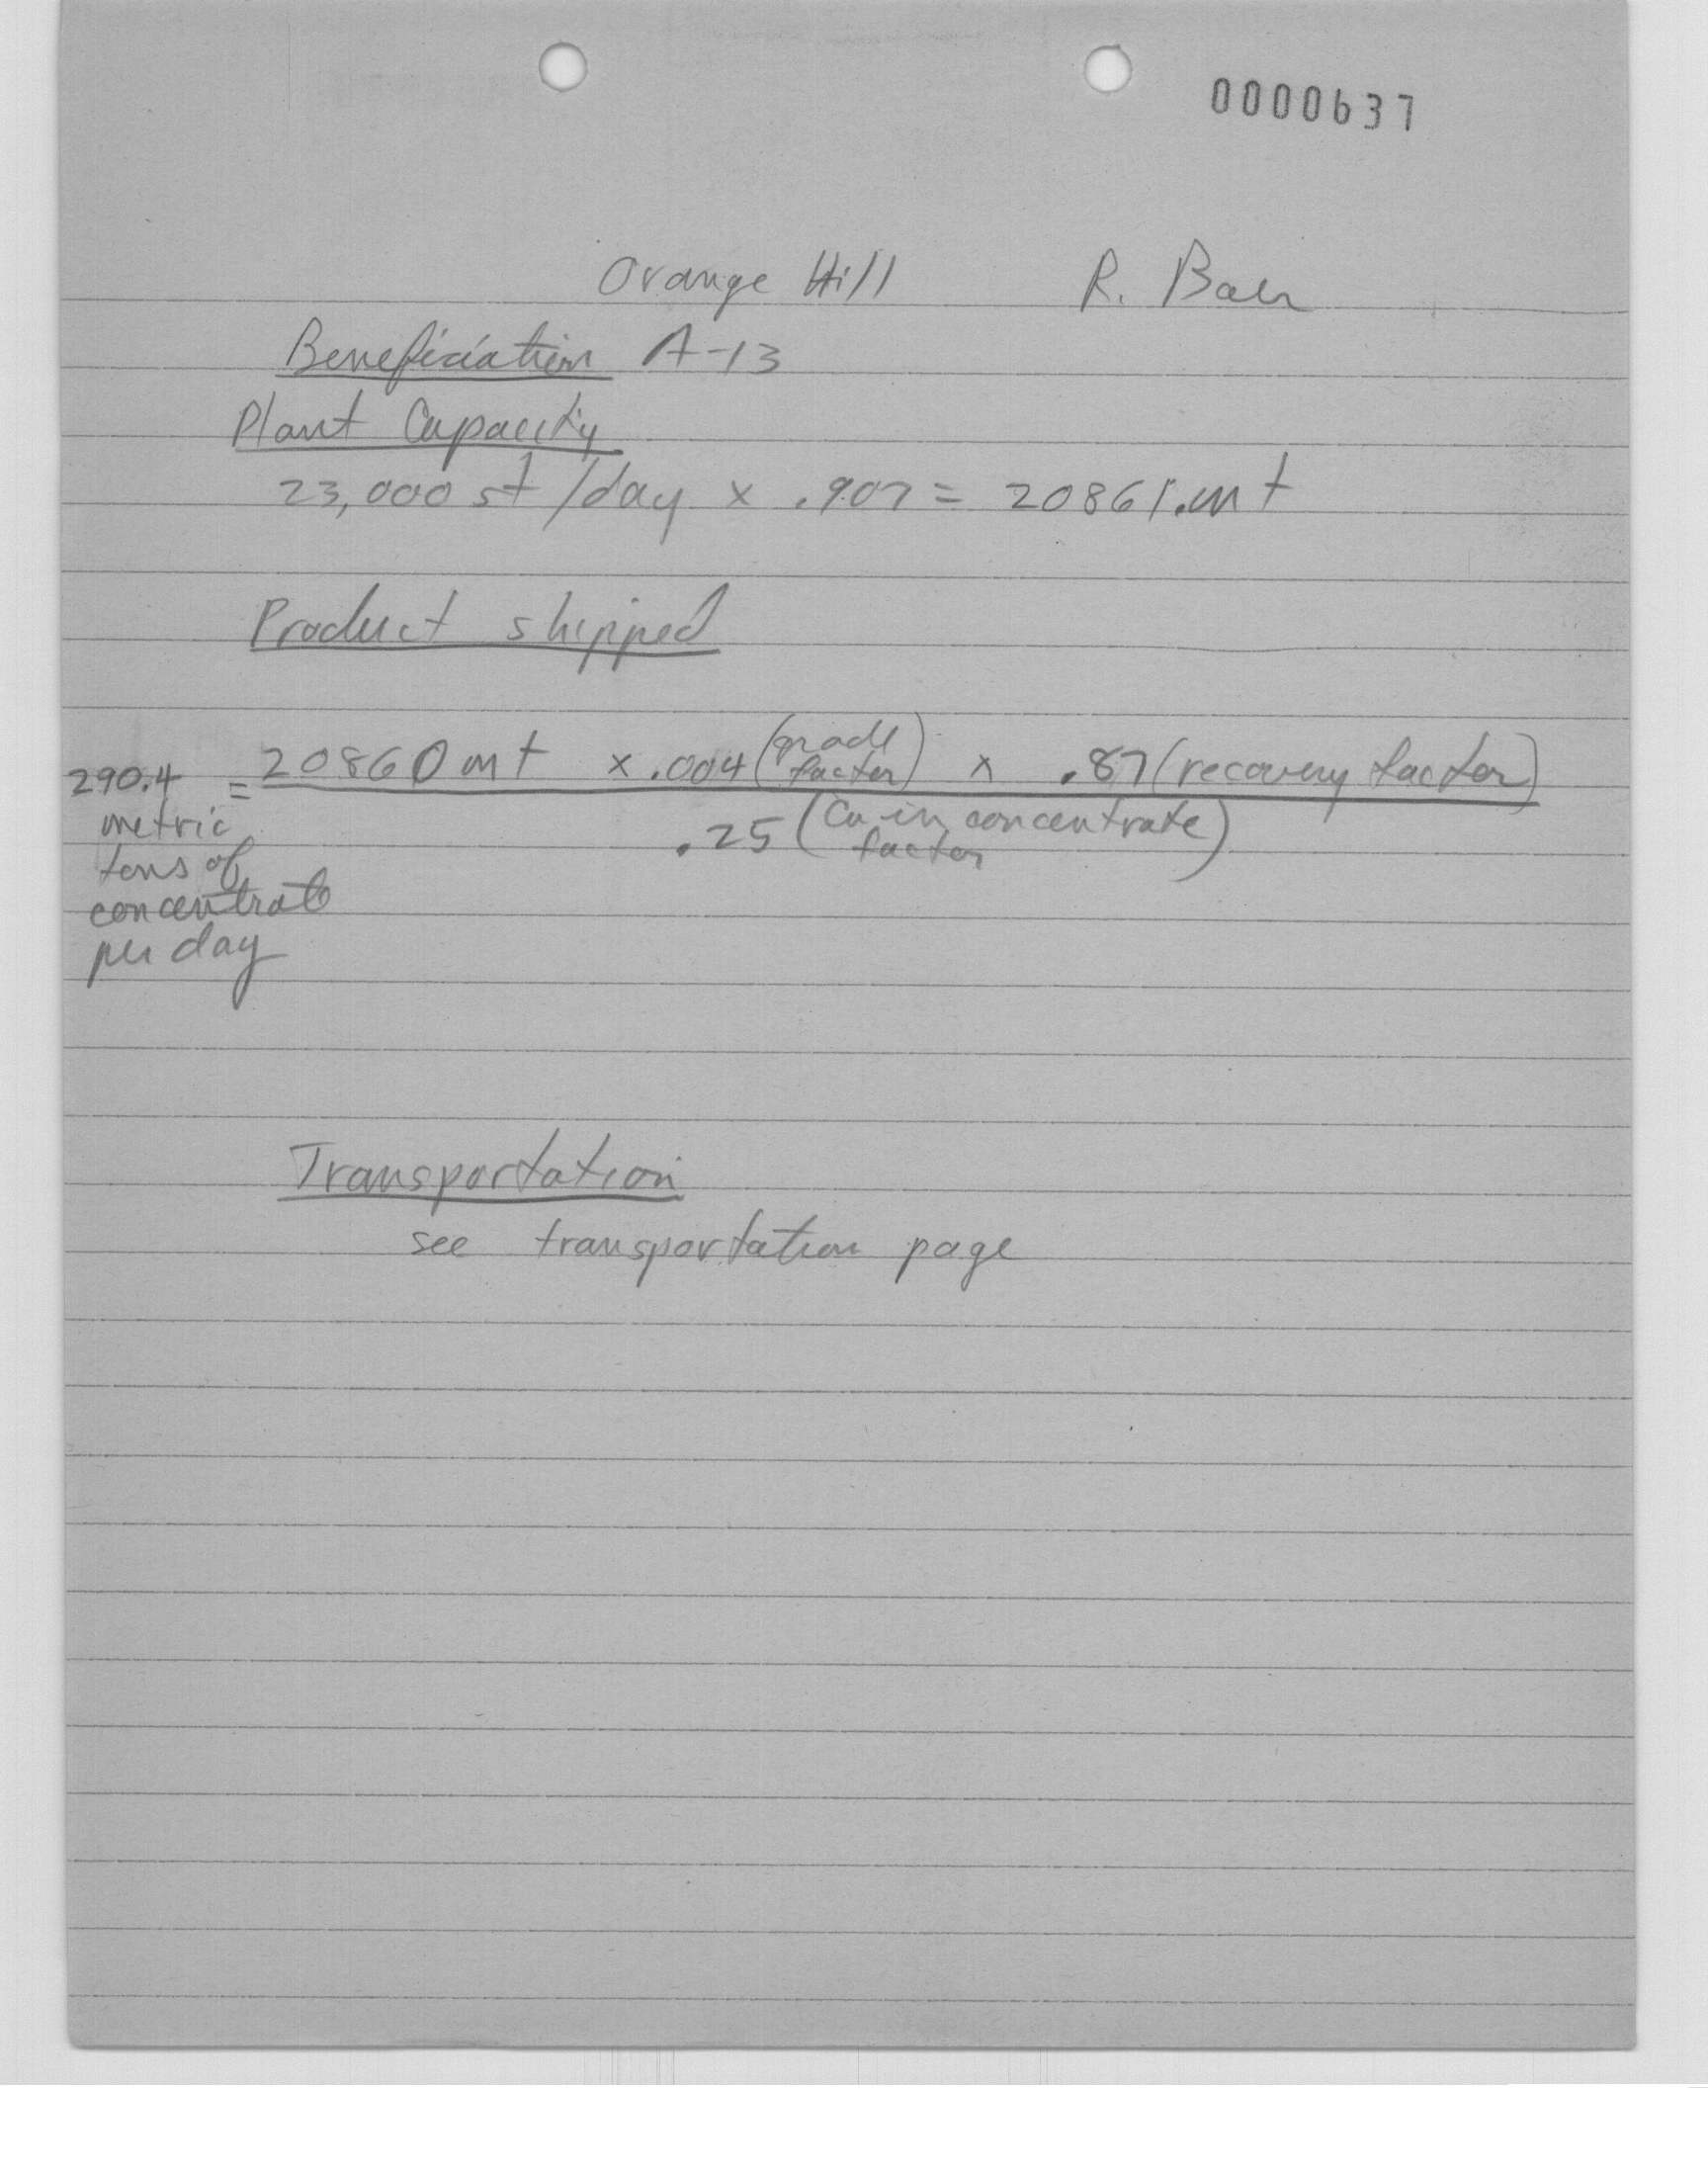 0000637
Orange Hill R. Baer
Beneficiation A-13
Plant Capacity
23,000 st/day x .907 = 20861.mt
Product shipped
290.4 = 20860 mt x .004 (grade factor) x .87 (recovery factor)
metric .25 (Cu in concentrate factor)
tons of
concentrate
per day
Transportation
see transportation page